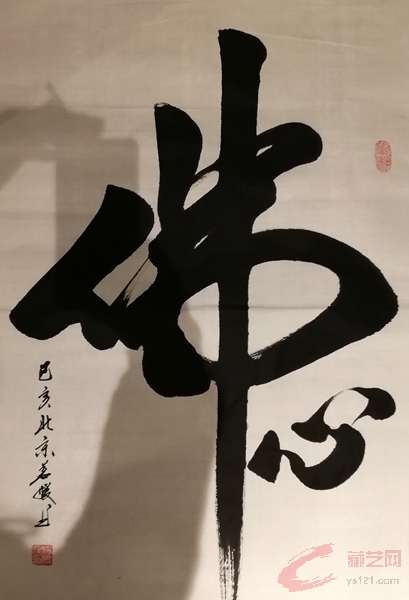 佛心
己亥北京
藏艺网
ys121.com